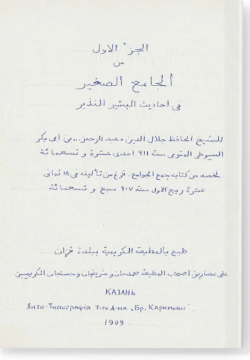 الجزء الاول
من
الجامع الصغير
فى احاديث البشير النذير
للشيخ الحافظ جلال الدين عبد الرحمن بن ابى بكر
السيوطى المتوفى سنة ٩١١ احدى عشرة و تسعمائة
لخصه من كتابه جمع الجوامع. فرغ من تأليفه فى ١٨ ثمانى
عشرة ربيع الاول سنة ٩٠٧ سبع و تسعمائة
طبع بالمطبعة الكريمية ببلدة قزان
على مصاريف اصحاب المطبعة محمدجان و شريفجان و حسنجان الكريميين
КАЗАНЬ
Лито-Типографія Т-го Д-ма „Бр. Каримовы"
1909